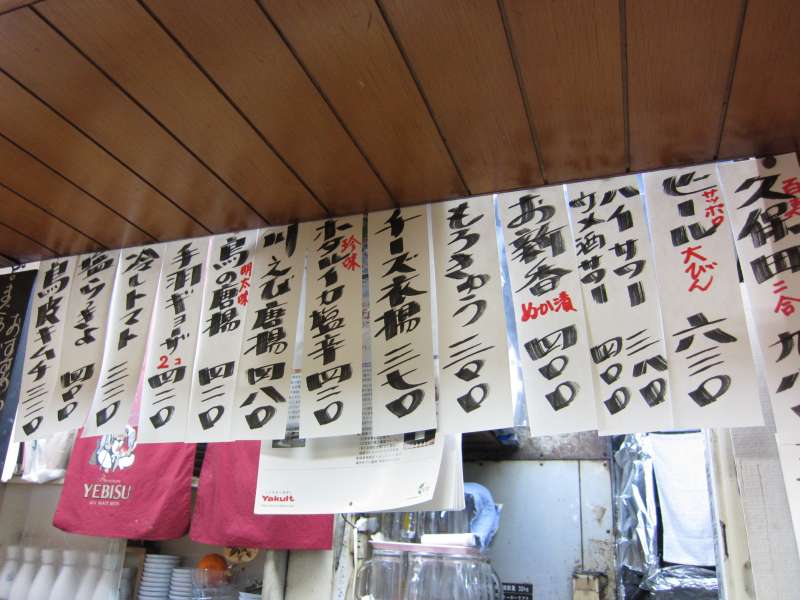 久保田 二合
サッポロ
ビール 大びん 六三〇
ハイサワー 三八〇
ウメ酒サワー 四〇〇
お新香 ぬか漬 四〇〇
もろきゅう 三〇〇
チーズ衣揚 三七〇
珍味
ホタルイカ塩辛 四二〇
川えび唐揚 四八〇
明太味
鳥の唐揚 四二〇
手羽ギョーザ 2コ 四二〇
冷しトマト 三三〇
四〇〇
鳥皮キムチ 三三〇
YEBISU
Yakult